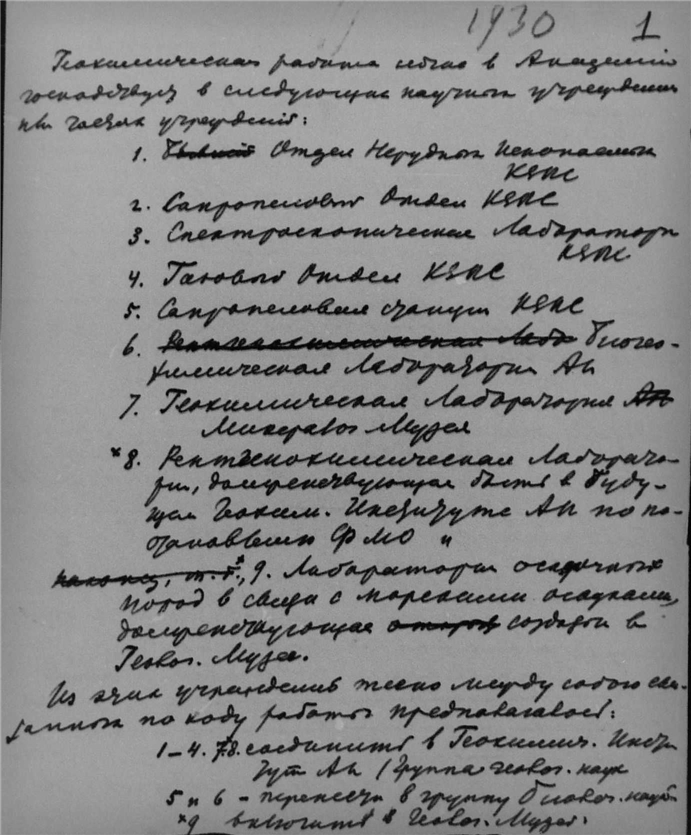 1930 1
Геохимическая работа сейчас в Академии
в следующих научных учреждениях
частях учреждений:
1. Бывший Отдел Нерудных Ископаемых
КЕПС
2. Сапропелевый Отдел КЕПС
3. Спектроскопическая Лаборатория
КЕПС
4. Газовый Отдел КЕПС
5. Сапропелевая станция КЕПС
6. Рентгенохимическая Лабо Биогео-
химическая Лаборатория АН
7. Геохимическая Лаборатория АН
Минералог Музея
×8. Рентгенохимическая Лаборато-
рия, долженствующая быть в буду-
щем Геохим. Институте АН по по-
становлению ФМО и
наконец, 9. Лаборатория осадочных
пород в связи с морскими осадками,
долженствующая создаться в
Геолог. Музее.
Из этих учреждений тесно между собою свя-
занных по ходу работы предполагалось:
1–4. 7.8. соединить в Геохимич. Инсти
тут АН (группа геолог. наук
5 и 6 – перенести в группу биолог. наук
×9 включить в Геолог. Музей.